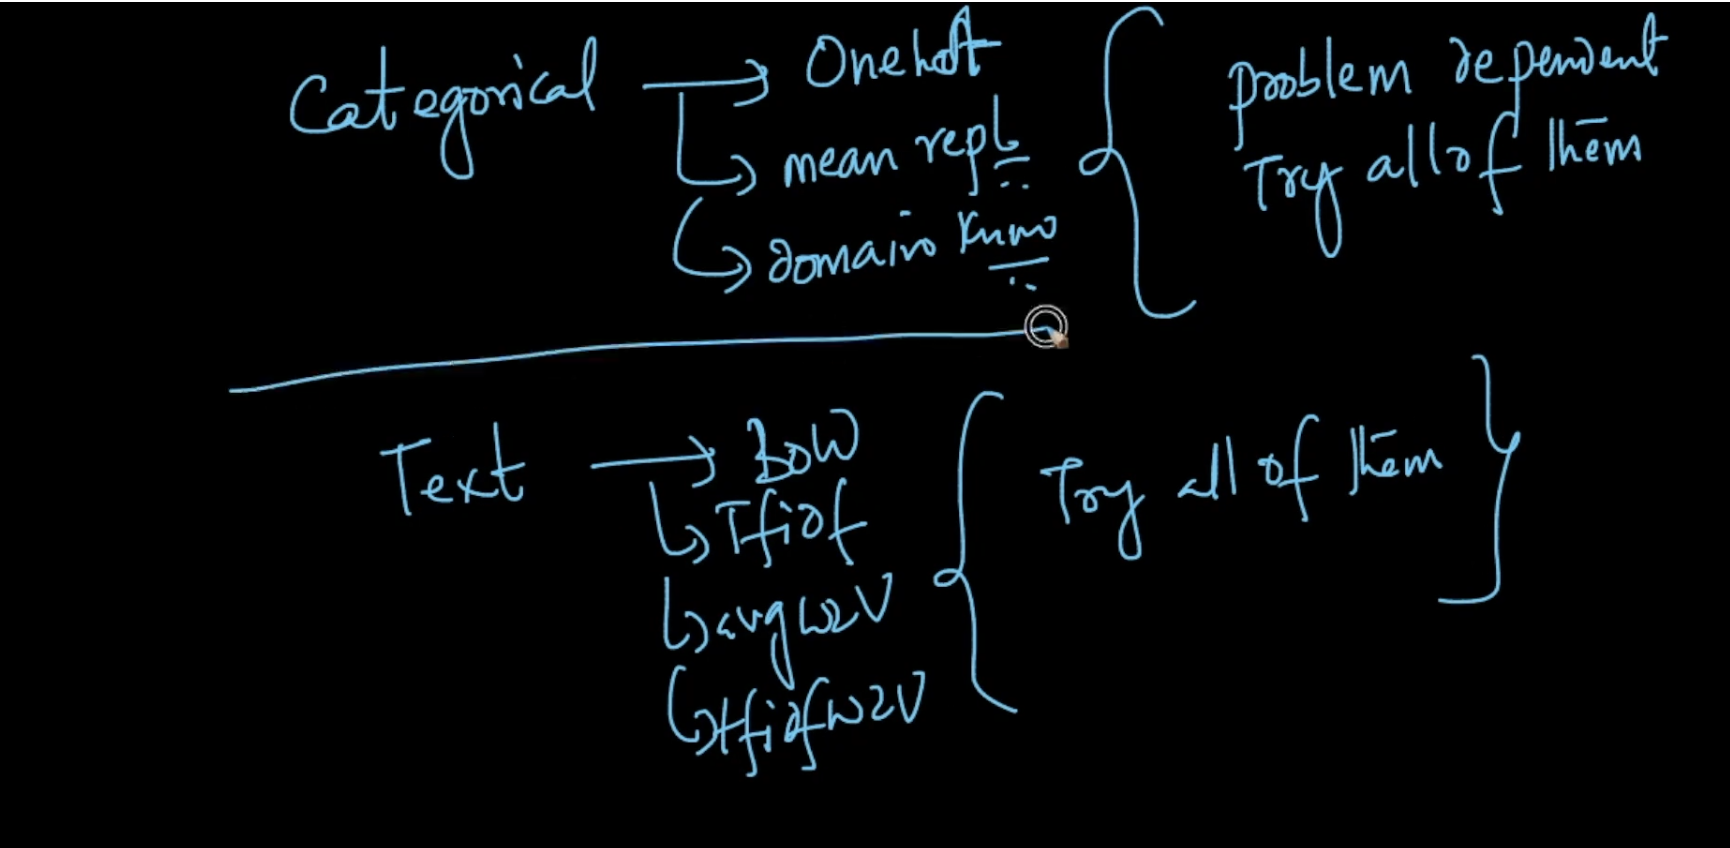 Categorical → Onehot
mean repl
domain know
problem dependent
Try all of them
Text → BOW
Tfidf
avgw2v
tfidfw2v
Try all of them